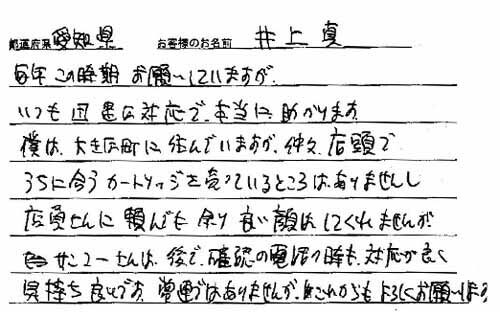 都道府県 愛知県 お客様のお名前 井上真
毎年この時期お願いしていますが、
いつも迅速な対応で、本当に助かります
僕は、大きな町に住んでいますが、仲々店頭で
うちに合うカートリッジを売っているところはありませんし
店員さんに頼んでも余り良い顔はしてくれませんが
サンコーさんは、後で、確認の電話の時も、対応が良く
気持ち良いです。常連ではありませんが、これからもよろしくお願いします